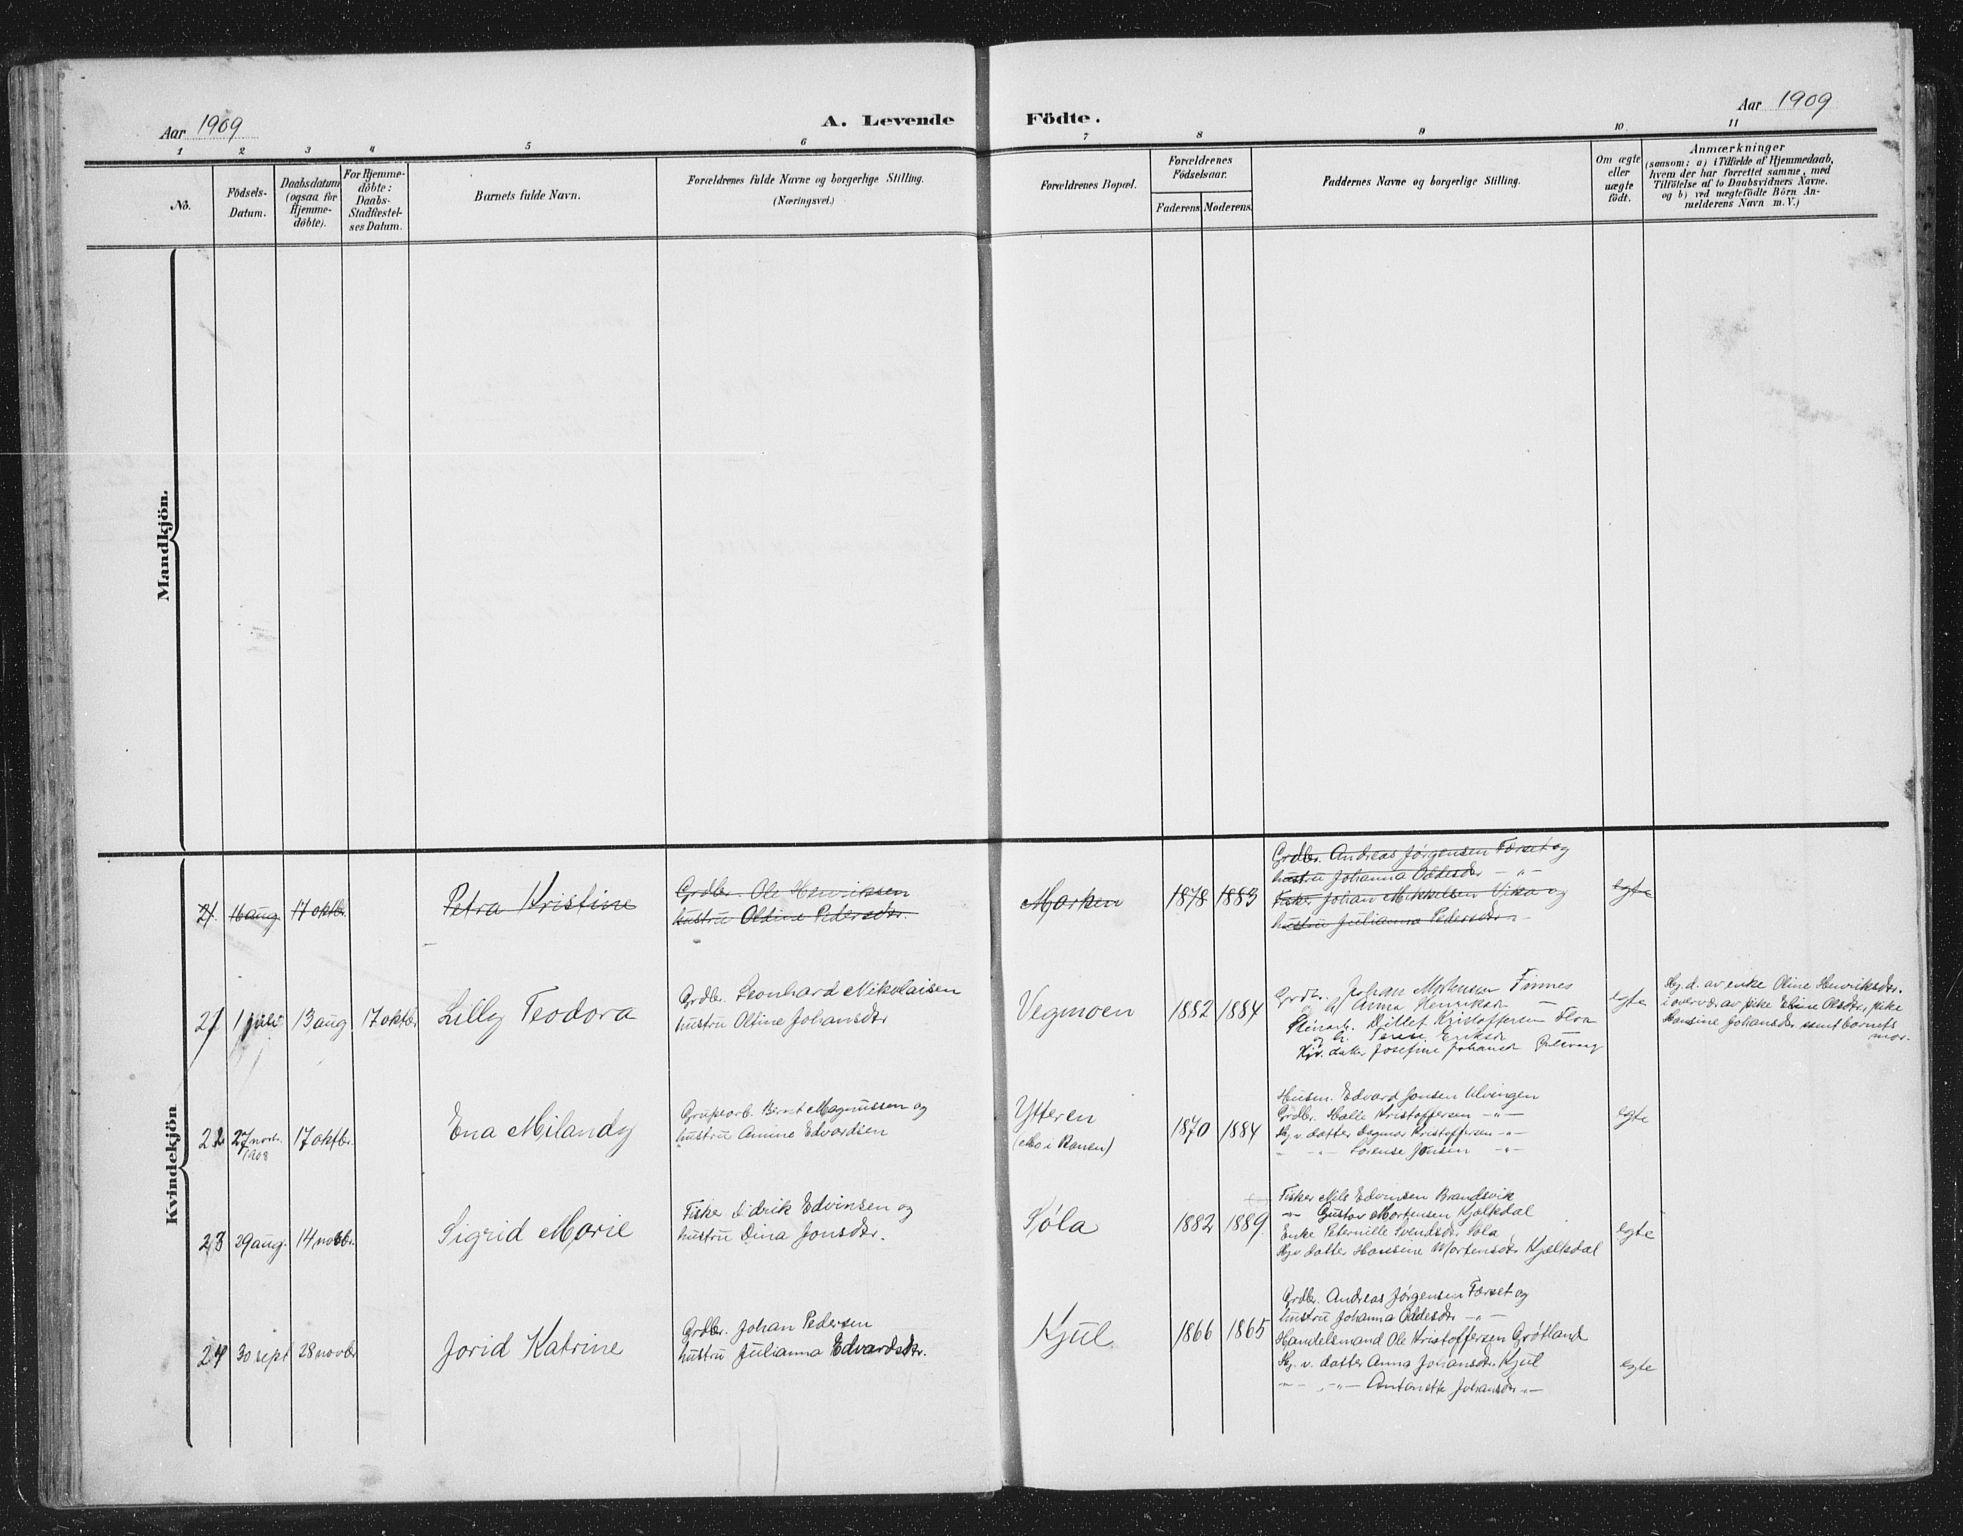 Aar 1909
A. Levende Födte.
Aar 1909
1 2 3 4 5 6 7 8 9 10 11
No.
Födsels-
Datum.
Daabsdatum
(ogsaa for
Hjemme-
döbte).
For Hjemme-
döbte:
Daabs-
Stadfæstel-
ses Datum.
Barnets fulde Navn.
Forældrenes fulde Navne og borgerlige Stilling.
(Næringsvei.)
Forældrenes Bopæl.
Forældrenes
Födselsaar.
Faderens. Moderens.
Faddernes Navne og borgerlige Stilling.
Om ægte
eller
uægte
födt.
Anmærkninger
(saasom: a) i Tilfælde af Hjemmedaab,
hvem der har forrettet samme, med
Tilföielse af to Daabsvidners Navne.
og b) ved uægtefödte Börn An-
melderens Navn m. V.)
Mandkjön.
Kvindekjön
21 16 aug. 17 oktbr. Petra Kristine
Grdbr. Ole Henriksen
hustru Oldine Pedersdr.
Marken 1878 1883
Grdbr. Andreas Jørgensen Færset og
hustru Johanna Oddesdr — " —
Fisker Johan Mikkelsen Vika og
hustru Julianna Pedersdr
egte
21 1 juli 13 aug 17 oktbr Lilly Teodora
Grdb. Leonhard Nikolaisen
hustru Oltine Johansdr
Vegmoen 1882 1884
Grdb. Johan Mortensen Finnes
og Anna Henriksdr —
Ditlet Kristoffersen
og h. Eriksdr
Kjv. datter Josefine Johansdr
egte
Hj. d. av enke Oline Henriksdr.
i overvær av pike Eline Olsdr, pike
Hansine Johansdr samt barnets
mor.
22 27 novbr. 1908 17 oktbr. Ena Milandy
Grubearb. Bernt Magnussen og
hustru Amine Edvardsen
Ytteren
(Mo i Ranen)
1870 1884
Husm. Edvard Jonsen Ulvingen
Grdbr. Halle Kristoffersen — " —
Kj. v. datter Dagmar Kristoffersen — " —
" — " — Jonsen — " —
egte
23 29 aug. 14 novbr. Sigrid Marie
Fisker Didrik Edvinsen og
hustru Dina Jonsdr.
Søla 1882 1889.
Fisker Nils Edvinsen Brandsvik
— " — Gustav Mortensen Kjelkdal
Enke Peternille Svendsdr Søla
Kj.v datter Hansine Mortensdr Kjelkdal
egte
24 30 sept 28 novbr Jorid Katrine
Grdbr. Johan Pedersen
hustru Julianna Edvardsdr.
Kjul 1866 1865
Grdbr. Andreas Jørgensen Færset og
hustru Johanna Oddesdr — " —
Handelsmand Ole Kristoffersen Grøtland
Kj. v. datter Anna Johansdr. Kjul
— " — " — Antonette Johansdr — " —
egte